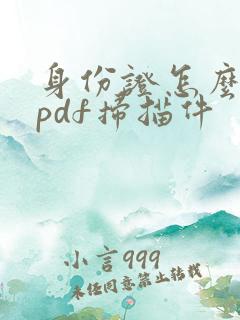 身份證怎麼
pdf掃描件
小言999
未任同意禁止转载